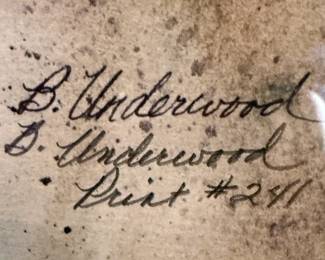 B. Underwood
B. Underwood
Print #241